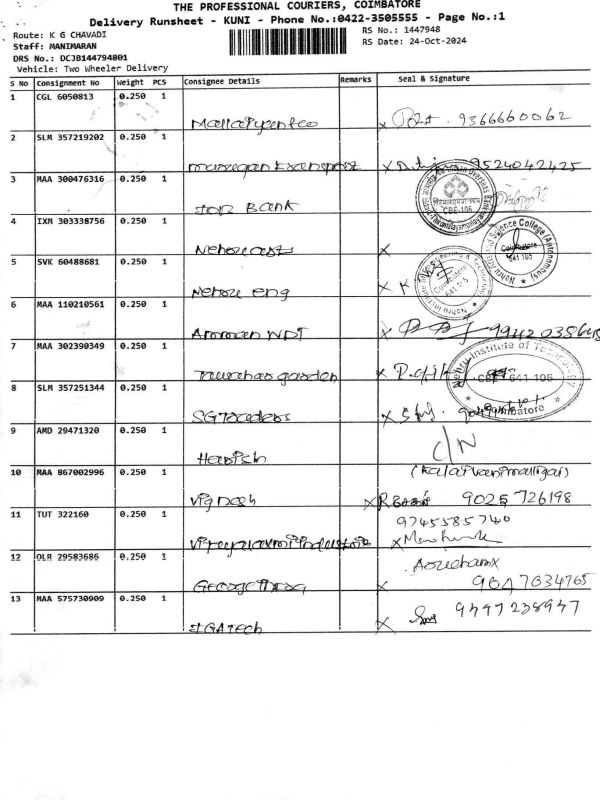 THE PROFESSIONAL COURIERS, COIMBATORE
Delivery Runsheet - KUNI - Phone No.:0422-3505555 - Page No.:1
Route: K G CHAVADI
RS No.: 1447948
Staff: MANIMARAN
RS Date: 24-Oct-2024
DRS No.: DCJB144794801
Vehicle: Two Wheeler Delivery
S No Consignment No Weight PCS Consignee Details Remarks Seal & Signature
1 CGL 6050813 0.250 1
9366660062
2 SLM 357219202 0.250 1
murugan Exenport x 9524042425
3 MAA 300476316 0.250 1
IOB Bank
CBE-105
4 IXM 303338756 0.250 1
Nehru arts x
Science College (Autonomous)
Coimbatore
641 105
5 SVK 60488681 0.250 1
Nehru eng x K
Coimbatore
641 105
6 MAA 110210561 0.250 1
Amman NDT x 9942038645
7 MAA 302390349 0.250 1
garden x
Nehru Institute of Technology
CBE-641 105
Coimbatore
8 SLM 357251344 0.250 1
SG Traders x
9 AMD 29471320 0.250 1
C/N
Harish
10 MAA 867002996 0.250 1
(Kalaivanimalligai)
Vignesh x R 9025726198
11 TUT 322160 0.250 1
9745585740
x
12 OLR 29583686 0.250 1
George x 9047034765
13 MAA 575730909 0.250 1
9497238947
IGATech x